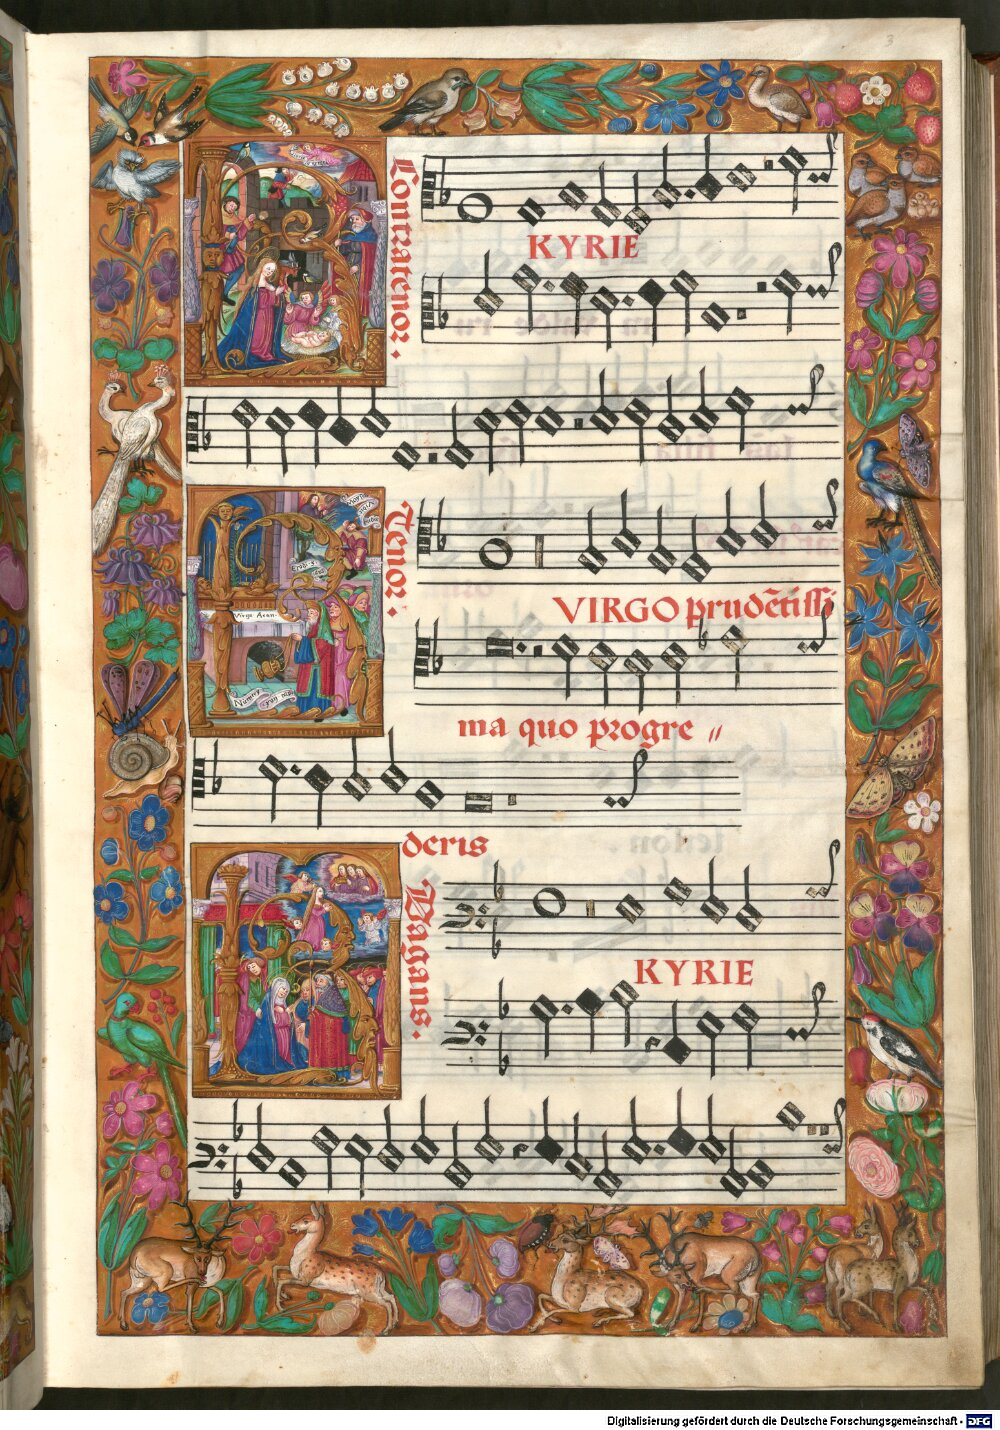 3
Contratenor.
KYRIE
Tenor.
VIRGO prudētissi
ma quo progre //
deris
Vagans.
KYRIE
Virga Aaron
Digitalisierung gefördert durch die Deutsche Forschungsgemeinschaft - DFG